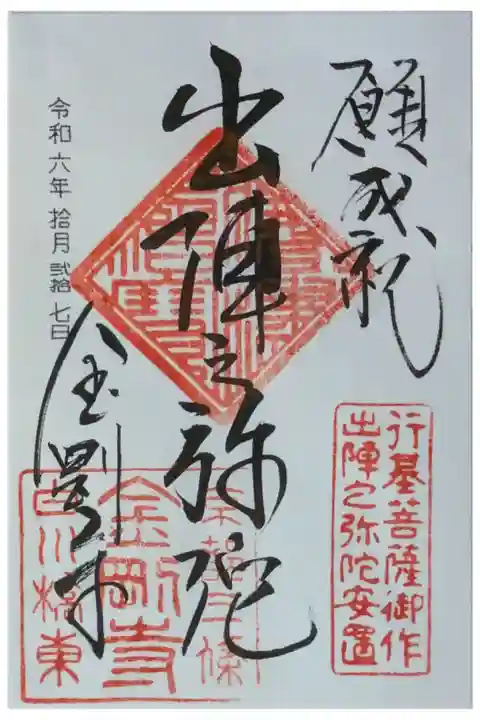 願成就
行基菩薩御作
出陣之弥陀安置
出陣之弥陀
京都三條
金剛寺
白川橋東
金剛寺
令和六年 拾月 弐拾七日